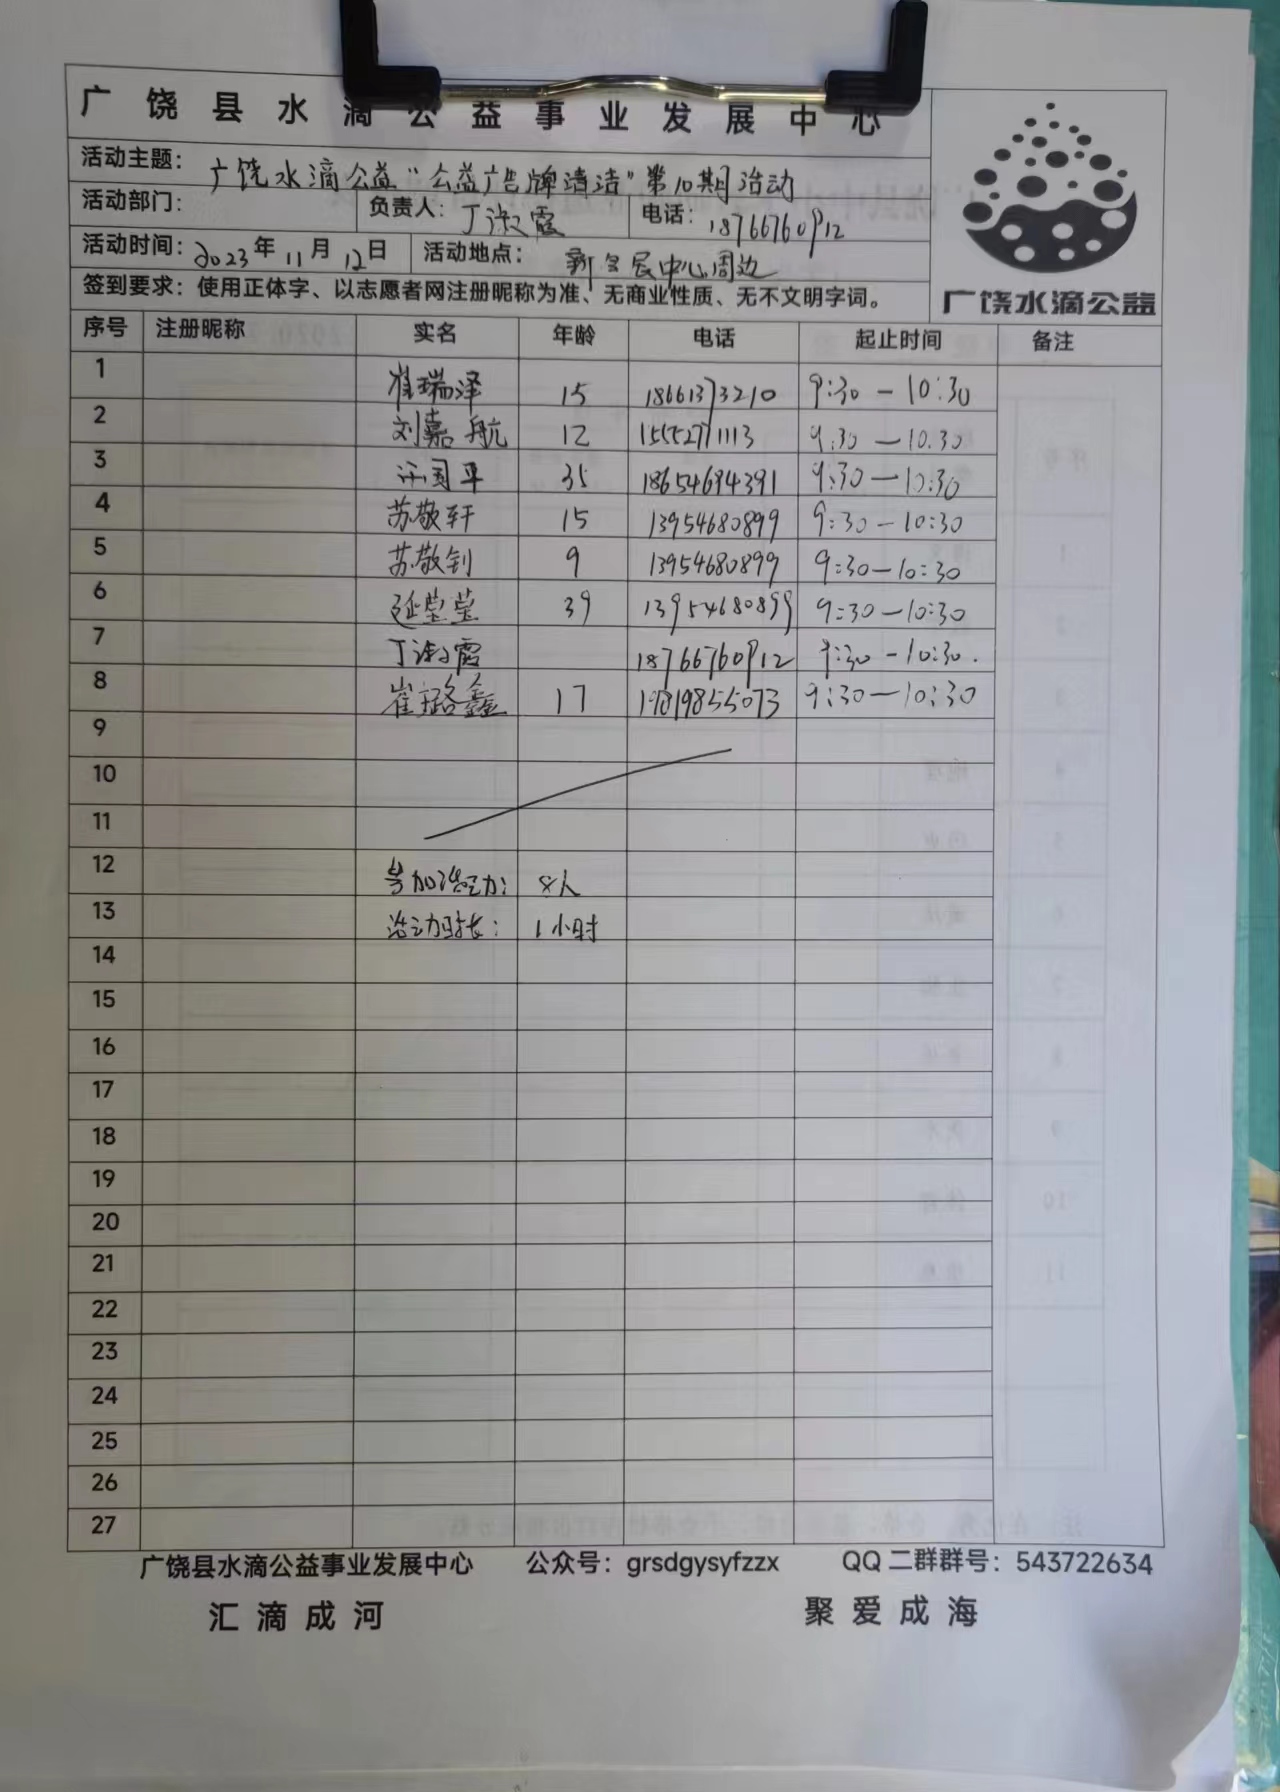 广饶县水滴公益事业发展中心
活动主题：广饶水滴公益“公益广告牌清洁”第10期活动
活动部门： 负责人：丁淑霞 电话：18766760912
活动时间：2023年11月12日 活动地点：新会展中心周边
签到要求：使用正体字、以志愿者网注册昵称为准、无商业性质、无不文明字词。
广饶水滴公益
序号 注册昵称 实名 年龄 电话 起止时间 备注
1 崔瑞泽 15 18661373210 9:30 — 10:30
2 刘嘉航 12 15552771113 9:30 — 10:30
3 国平 35 18654694391 9:30 — 10:30
4 苏敬轩 15 13954680899 9:30 — 10:30
5 苏敬钊 9 13954680899 9:30 — 10:30
6 延莹莹 39 13954680899 9:30 — 10:30
7 丁淑霞 18766760912 9:30 - 10:30.
8 崔璐鑫 17 19819855073 9:30 — 10:30
9
10
11
12 参加活动： 8人
13 活动时长： 1小时
14
15
16
17
18
19
20
21
22
23
24
25
26
27
广饶县水滴公益事业发展中心 公众号：grsdgysyfzzx QQ 二群群号：543722634
汇滴成河 聚爱成海